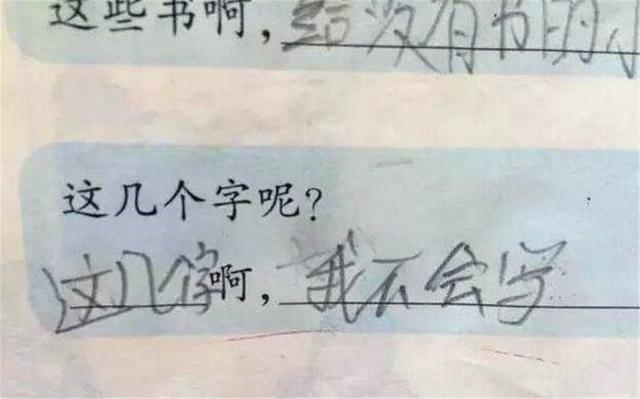 这些书啊，给没有书的
这几个字呢？
这几个字啊，我不会写